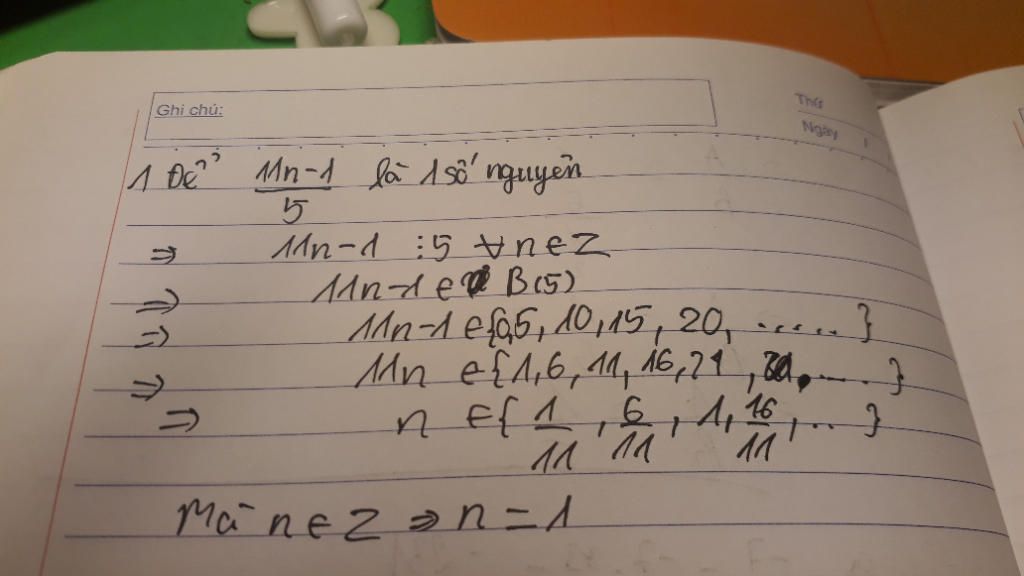 Ghi chú:
Thứ
Ngày
1 Để 11n-1/5 là 1 số nguyên
⇒ 11n-1 ⋮5 ∀n∈Z
⇒ 11n-1 ∈ B(5)
⇒ 11n-1 ∈{0,5, 10, 15, 20, ..... }
⇒ 11n ∈{1, 6, 11, 16, 21, .... }
⇒ n ∈{ 1/11, 6/11, 1, 16/11, .. }
Mà n∈Z ⇒ n = 1